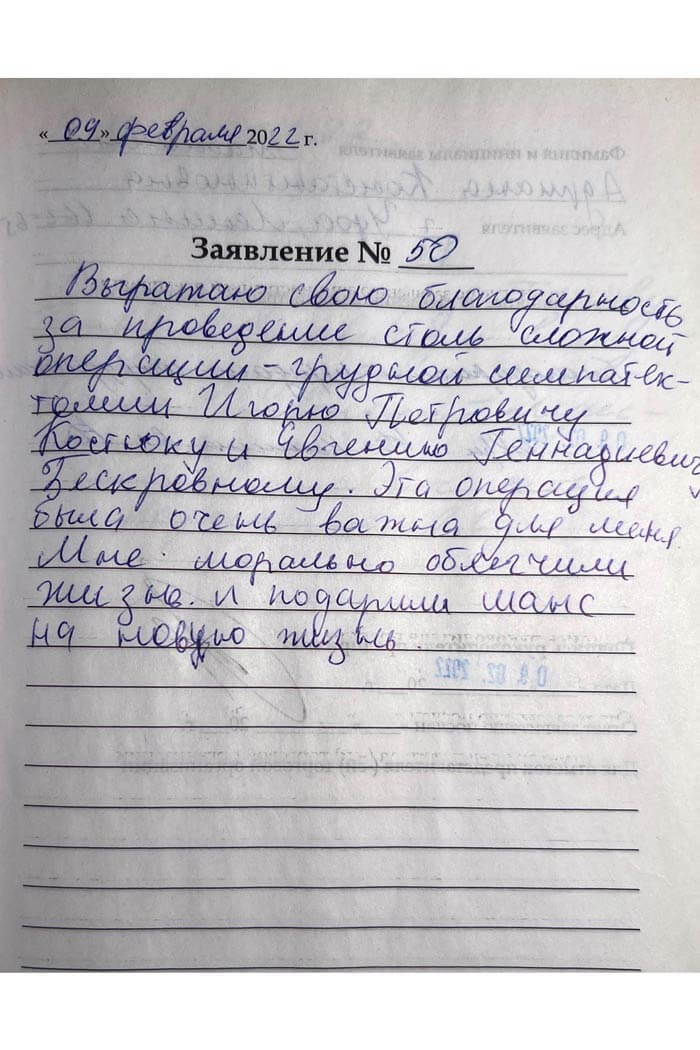 « 09 » февраля 2022 г.
Заявление № 50
Выражаю свою благодарность
за проведение столь сложной
операции - грудной симпатэк-
томии Игорю Петровичу
Костюку и Евгению Геннадиевичу
Бескровному. Эта операция
была очень важна для меня.
Мне морально облегчили
жизнь и подарили шанс
на новую жизнь.